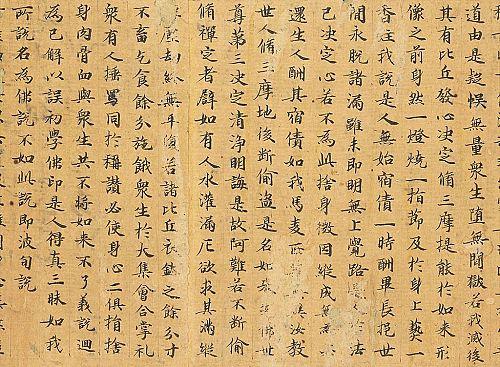 道由是疑無量衆生墮無間獄若我滅後
其有比丘發心決定脩三摩提能於如來形
像之前身然一燈燒一指節及於身上爇一
香炷我說是人無始宿債一時酬畢長挹世
間永脫諸漏雖未即明無上覺路於法
已決定心若不為此捨身微因縱成無
還生人酬其宿債如我馬麥汝教
世人脩三摩地後斷偷盜是名如佛世
尊第三決定清淨明誨是故阿難若不斷偷
脩禪定者譬如有人水灌漏卮欲求其滿縱
塵劫終無平復若諸比丘衣鉢之餘分寸
不畜乞食餘分施餓衆生於大集會合掌礼
衆有人捶詈同於稱讚必使身心二俱捐捨
身肉骨血與衆生共不將如來不了義說迴
為己解以誤初學佛印是人得真三昧如我
所說名為佛說不如此說即波旬說